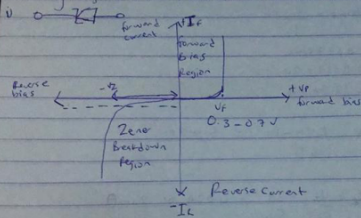 V
Forward current
I_F
Forward bias Region
Reverse bias
-V_Z
+V_F
Forward bias
V_F
0.3 - 0.7 V
Zener Breakdown Region
Reverse Current